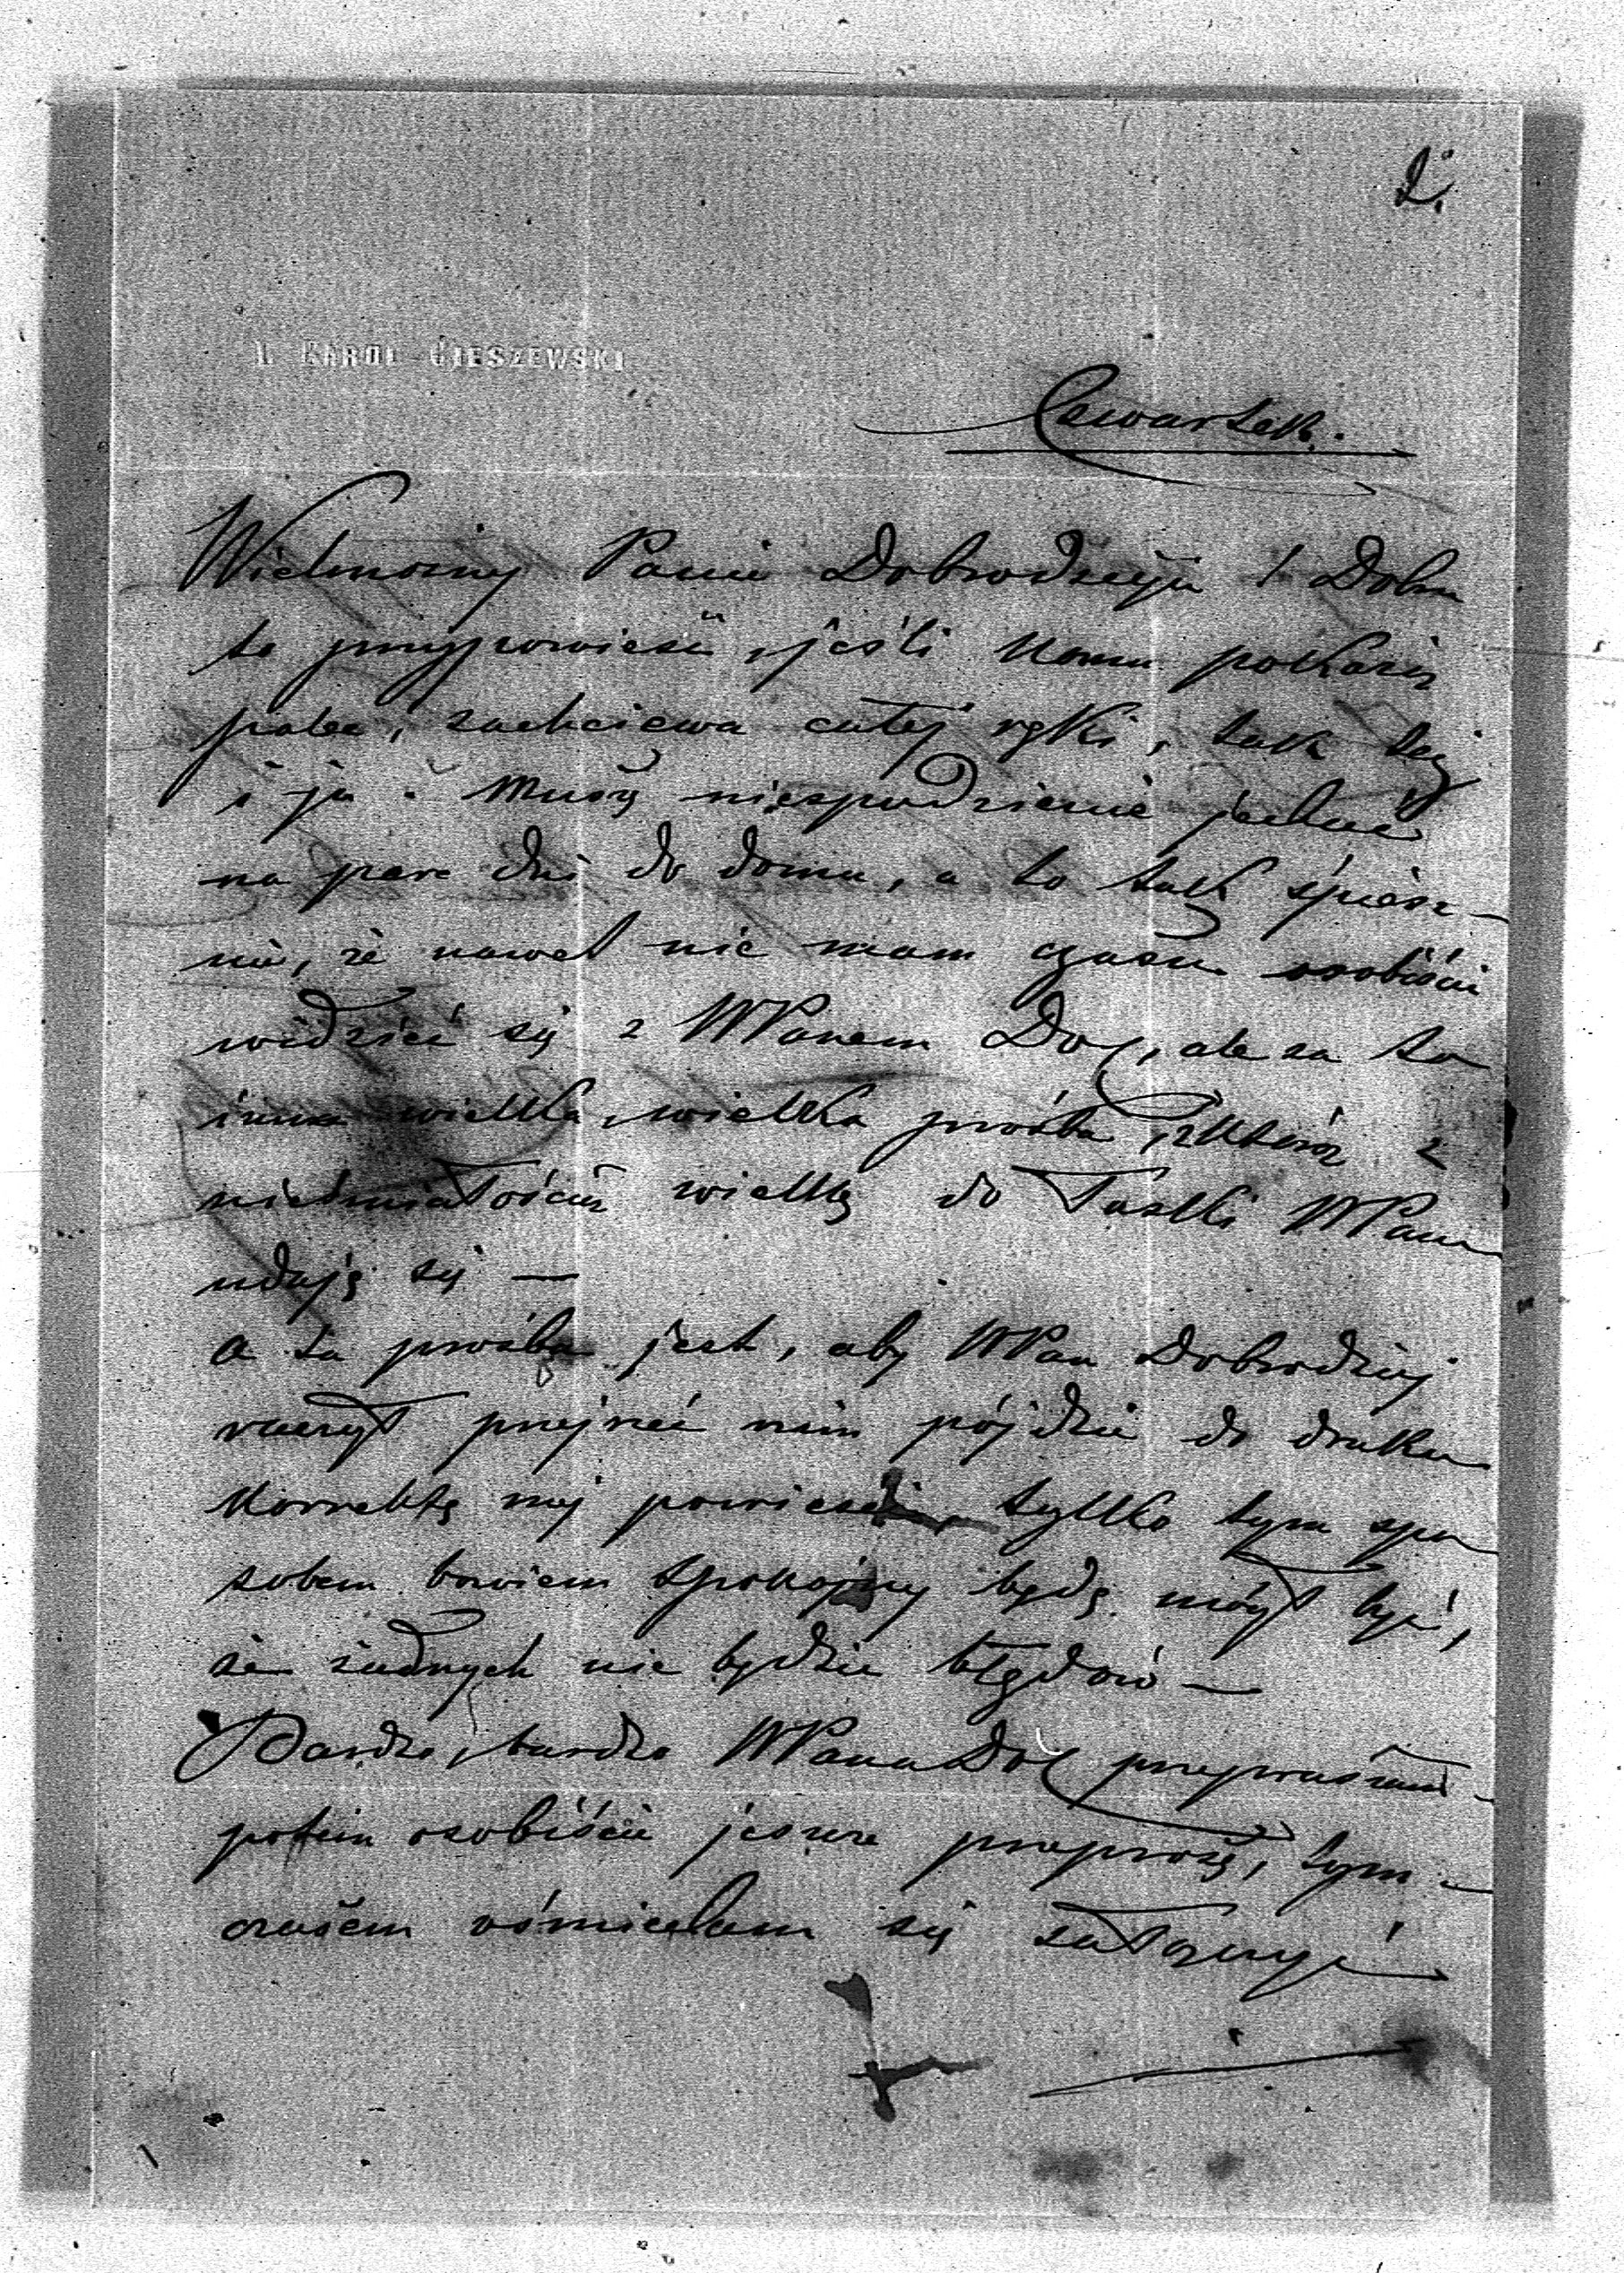 2.
KAROL CIESZEWSKI
Czwartek.
Wielmożny Panie Dobrodzieju! Dobre
to przypowieść, jeśli komu pokażą
palec, zachciewa całej ręki, tak też
i ja. Muszę niespodzianie jechać
na parę dni do domu, a to tak śpiesz-
nie, że nawet nie mam czasu osobiście
widzieć się z WPanem Do, ale za to
inna wielka, wielka prośba, z którą z
nieśmiałością wielką do Łaski WPana
udaję się —
a ta prośba jest, aby WPan Dobrodziej
raczył przejrzeć nim pójdzie do druku
korrektę mej powieści, tylko tym spo
sobem bowiem spokojny będę mógł być,
że żadnych nie będzie błędów —
Bardzo, bardzo WPana Do przepraszam -
potem osobiście jeszcze przeproszę, tym-
czasem ośmielam się załączyć